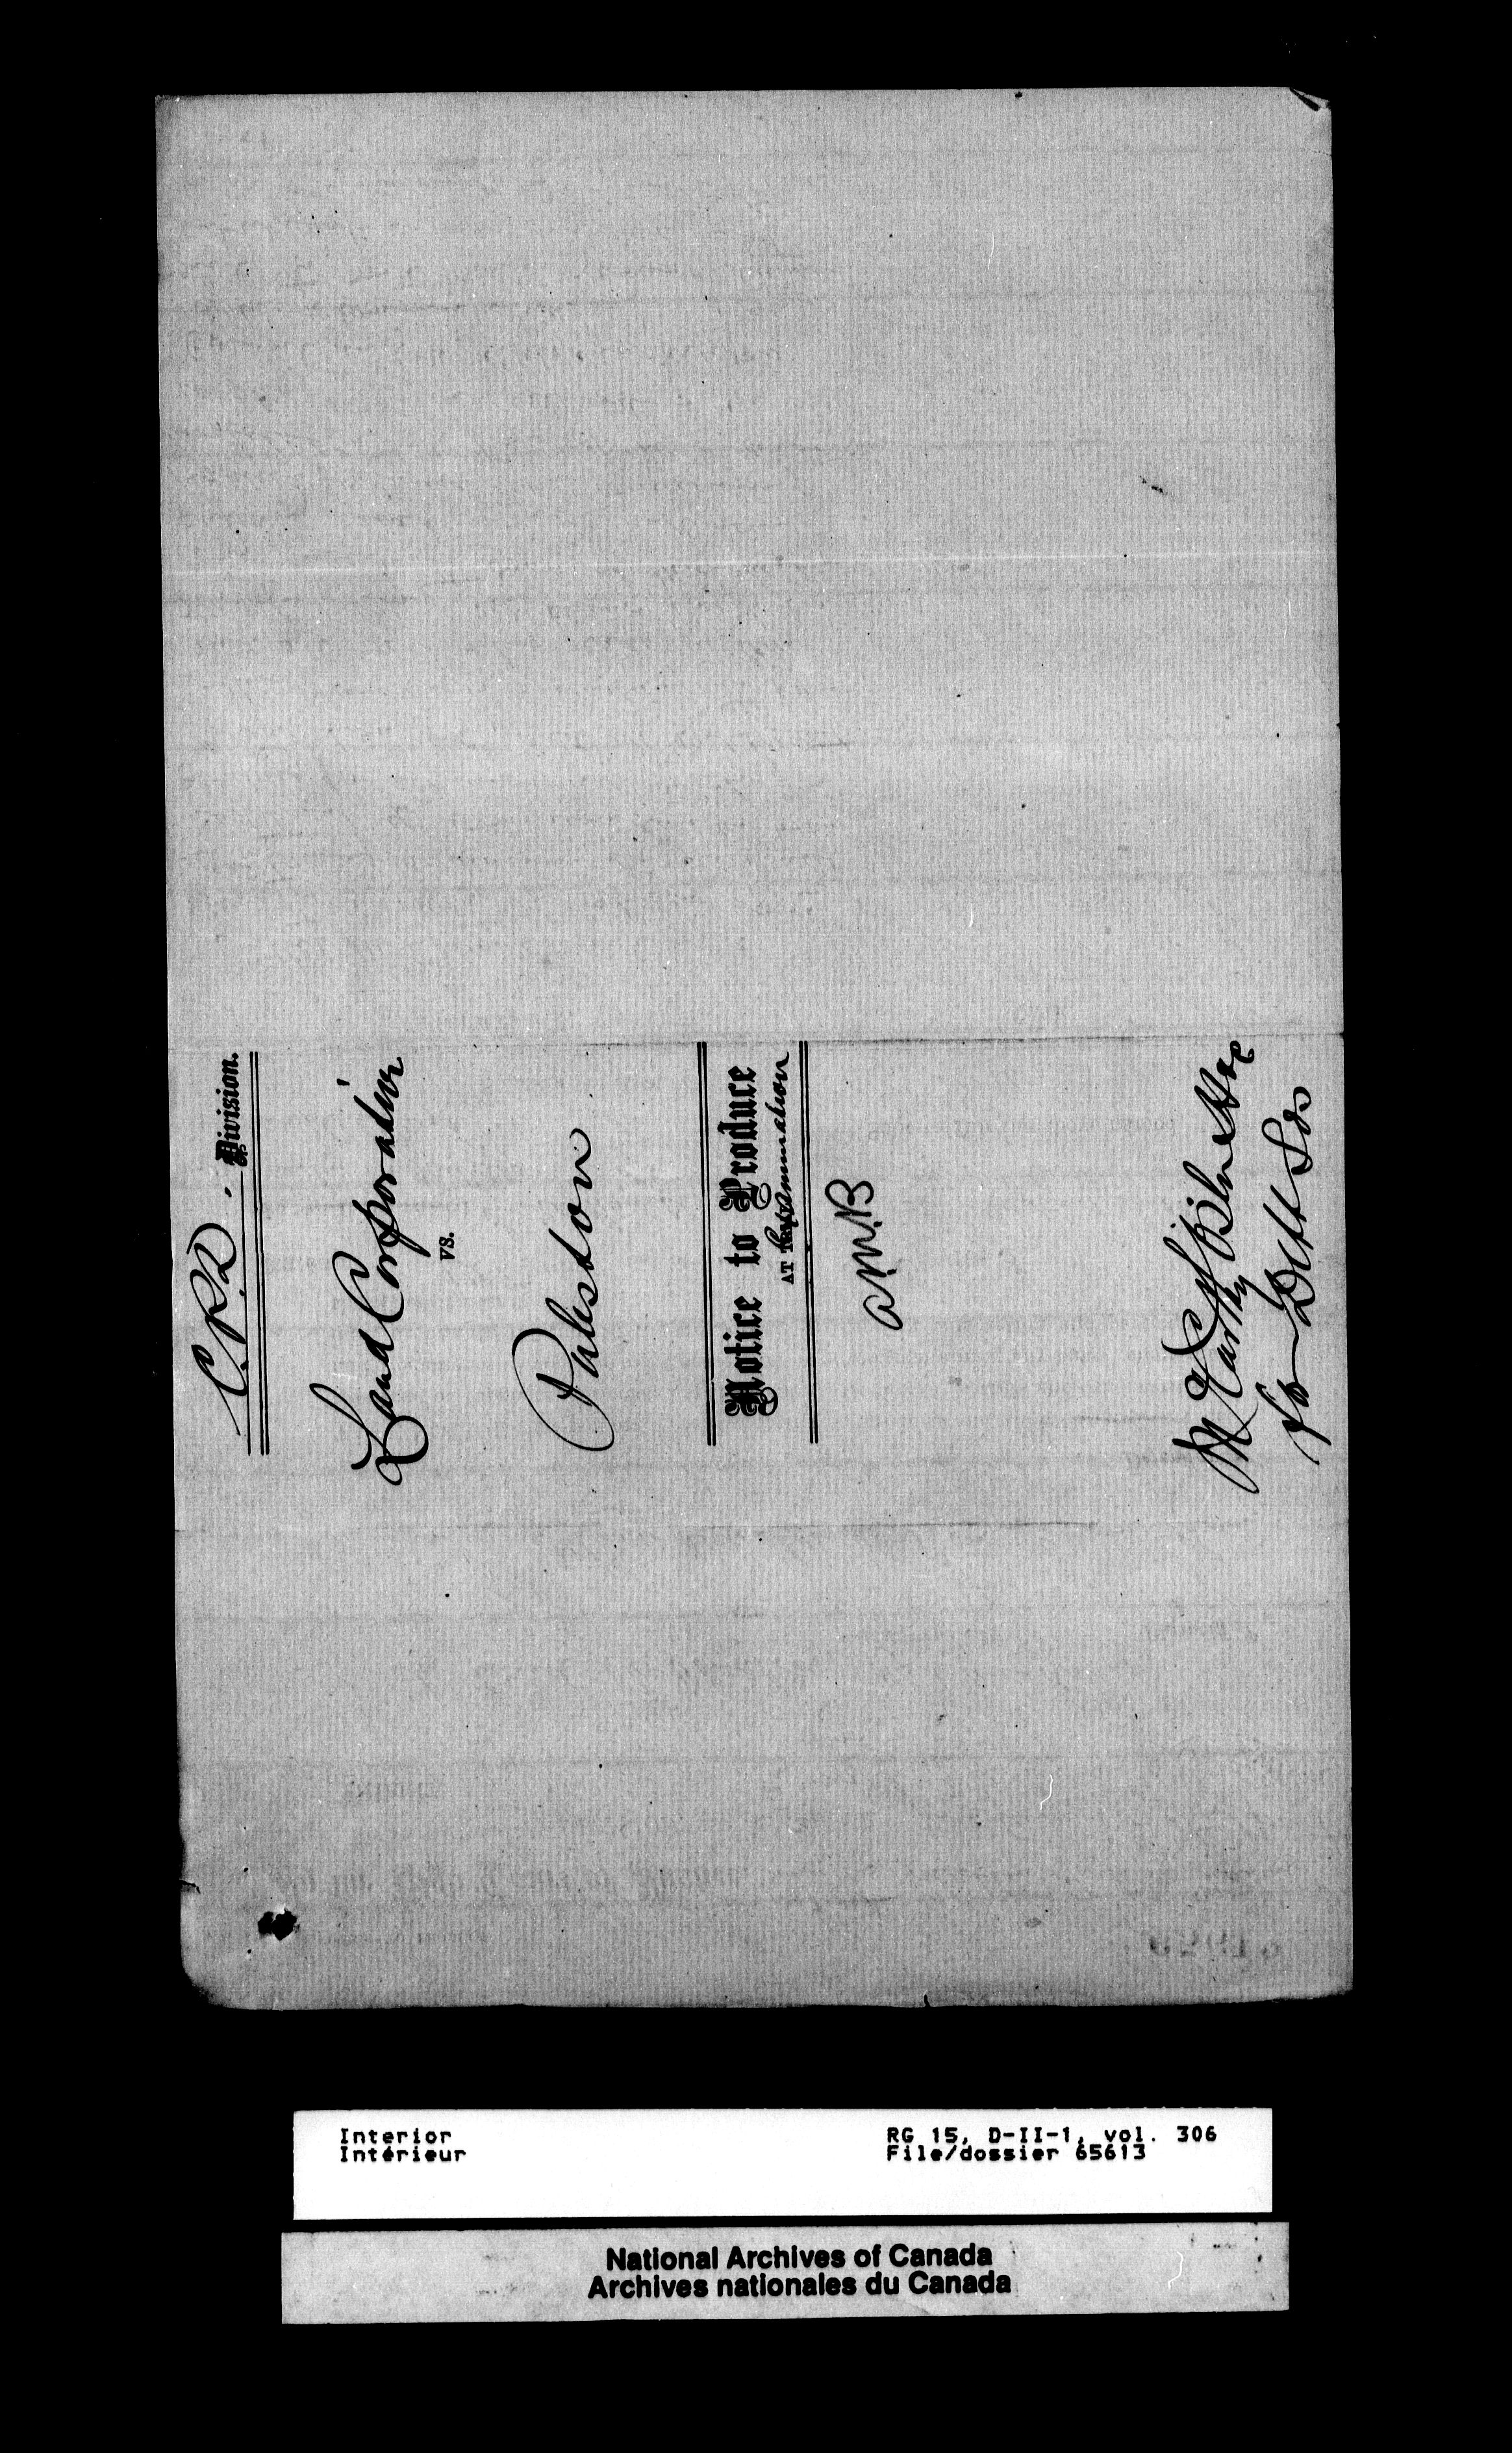 C.P.D. Division.
Land Corporation
vs.
Puleston
Notice to Produce
AT Examination
A.M.B
McCarthy
for Deft
Interior
Intérieur
RG 15, D-II-1, vol. 306
File/dossier 65613
National Archives of Canada
Archives nationales du Canada